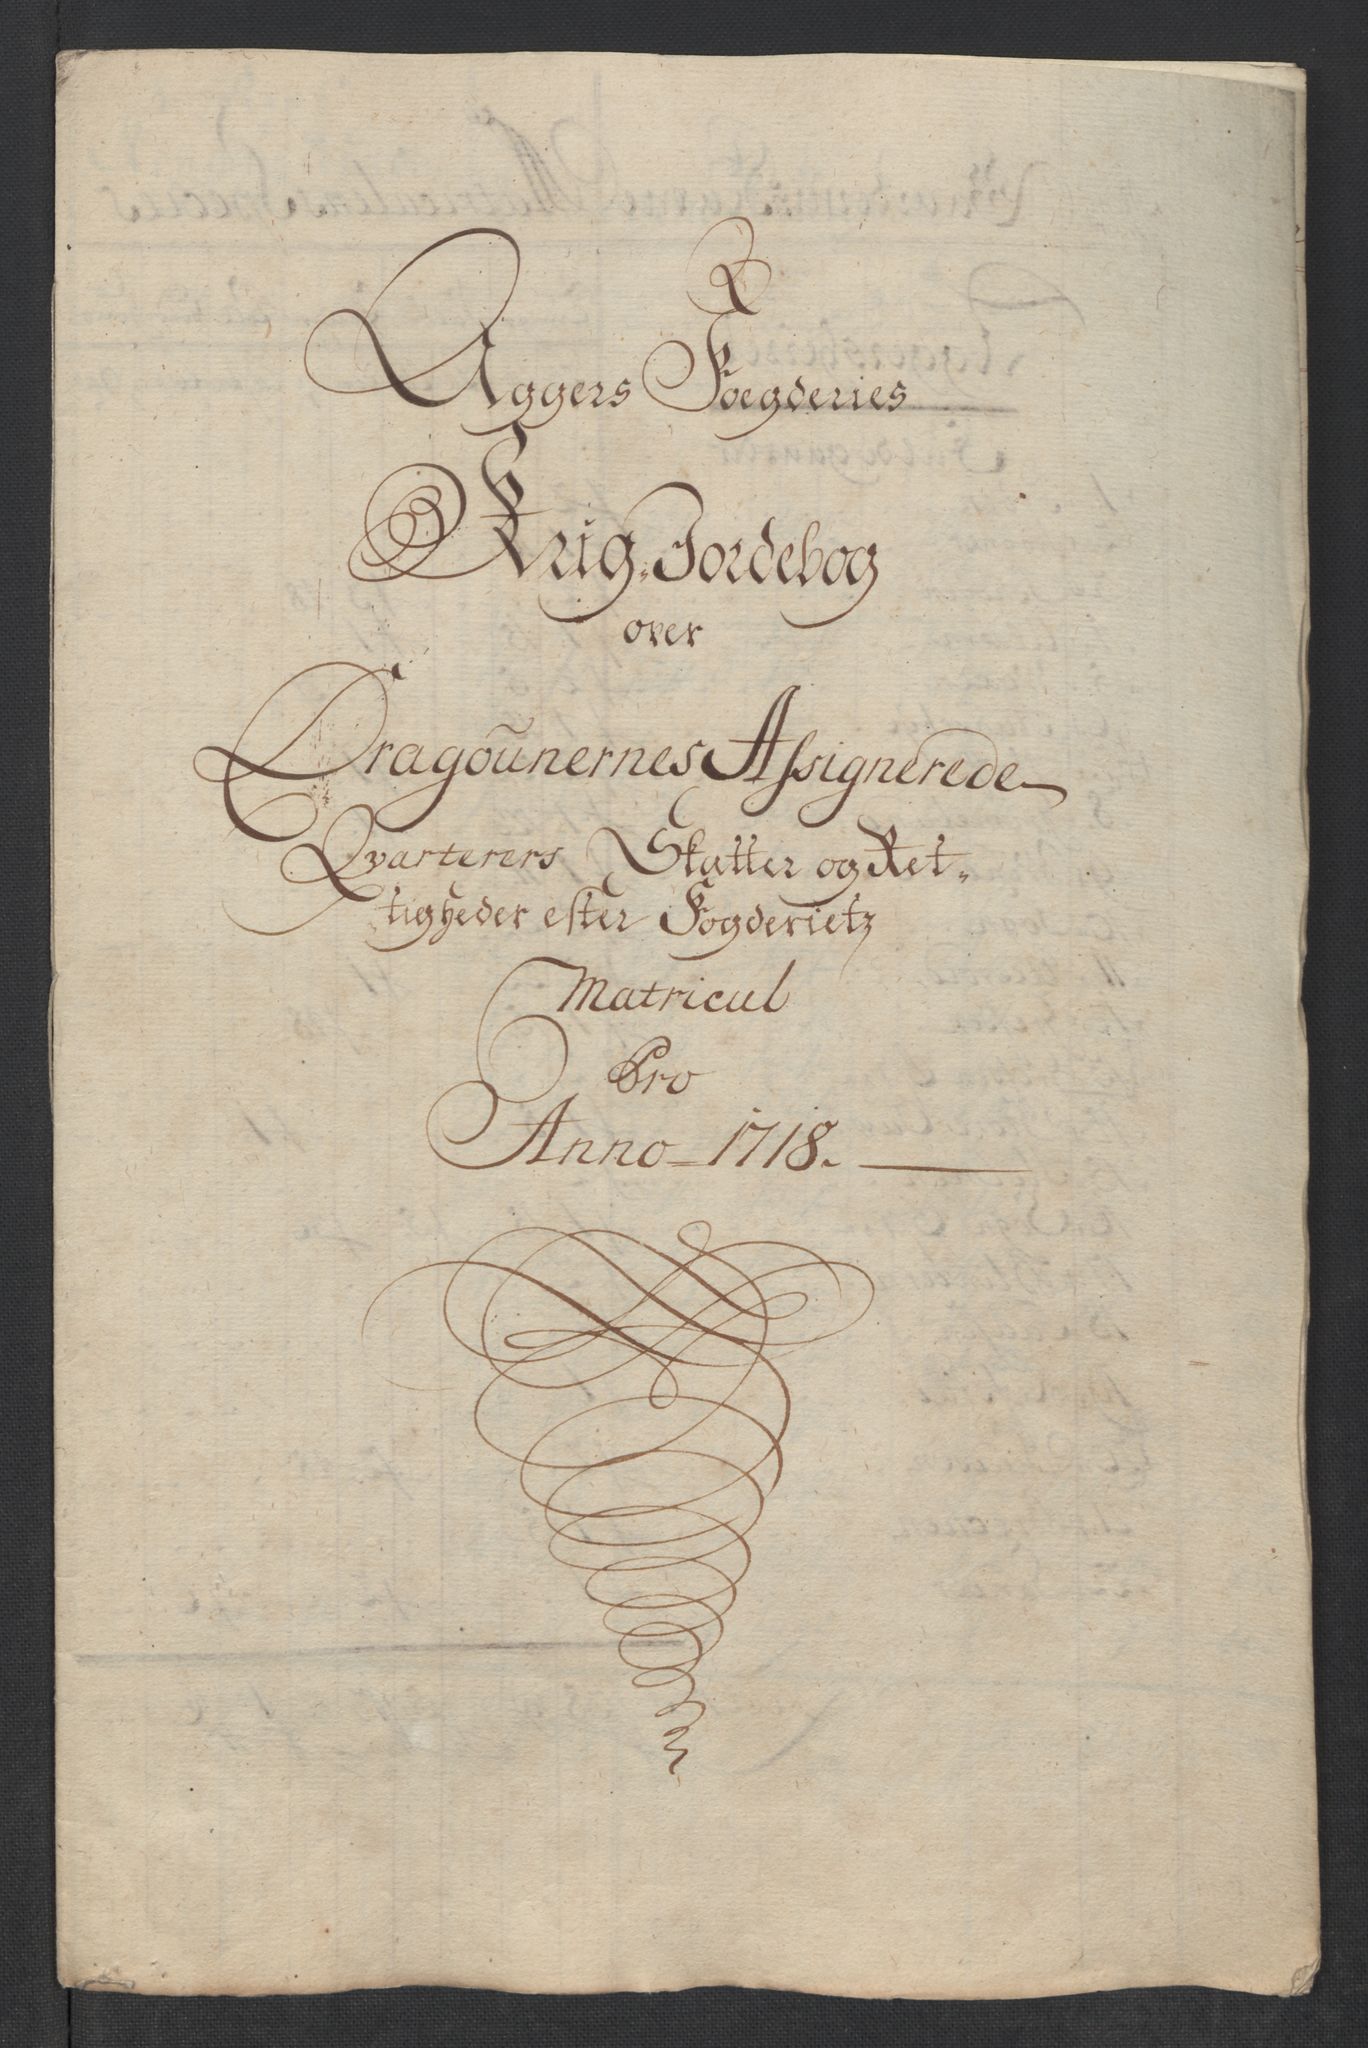 Aggers Foegderies
Krig-Jordebog
over
Dragoŭnernes Assignerede
Qvarterers Skatter og Ret-
tigheder efter Fogderietz
Matricul
Pro
Anno 1718.